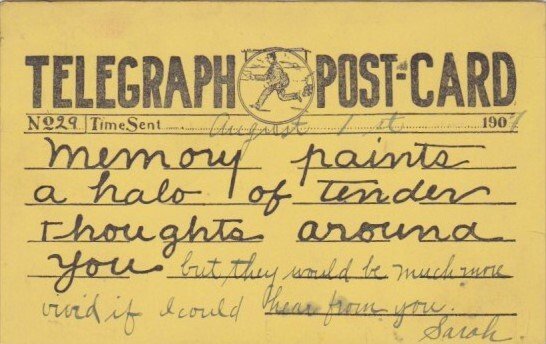 TELEGRAPH POST-CARD
No 29 Time Sent August 1st 1907
Memory paints
a halo of tender
thoughts around
you but they would be much more
vivid if I could hear from you.
Sarah.